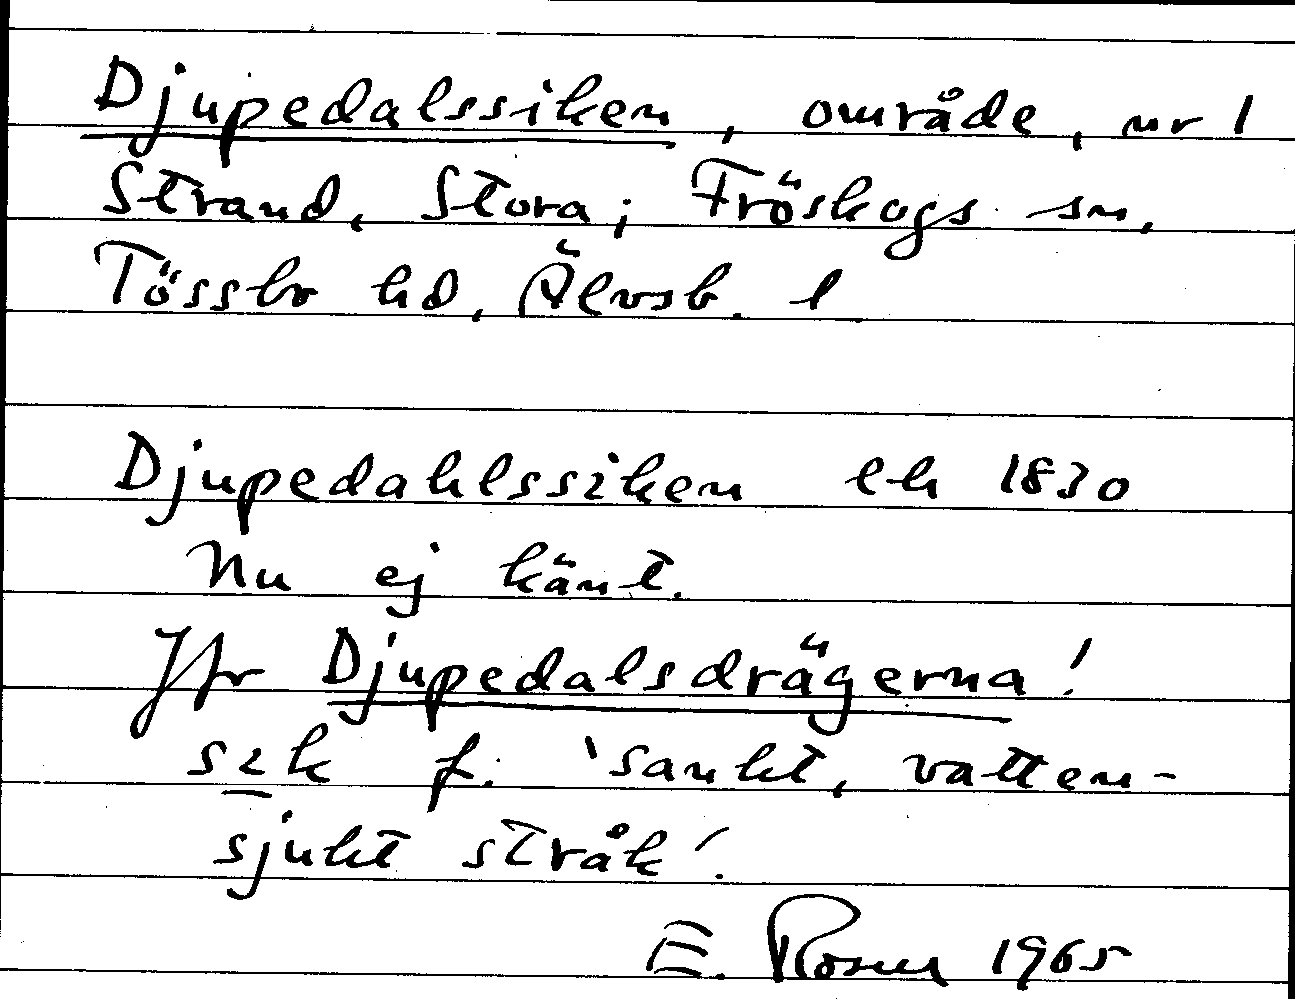 Djupedalssiken, område, nr 1
Strand, Stora; Fröskogs sn,
Tössbo hd, Älvsb. l
Djupedahlssiken lh 1830
Nu ej känt.
Jfr Djupedalsdrägerna!
sik f. 'sankt, vatten-
sjukt stråk'.
E. Rosell 1965